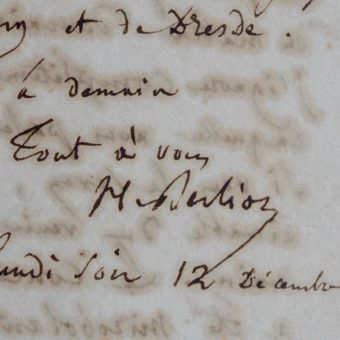 et de Dresde.
à demain
Tout à vous
H. Berlioz
lundi soir 12 Décembre